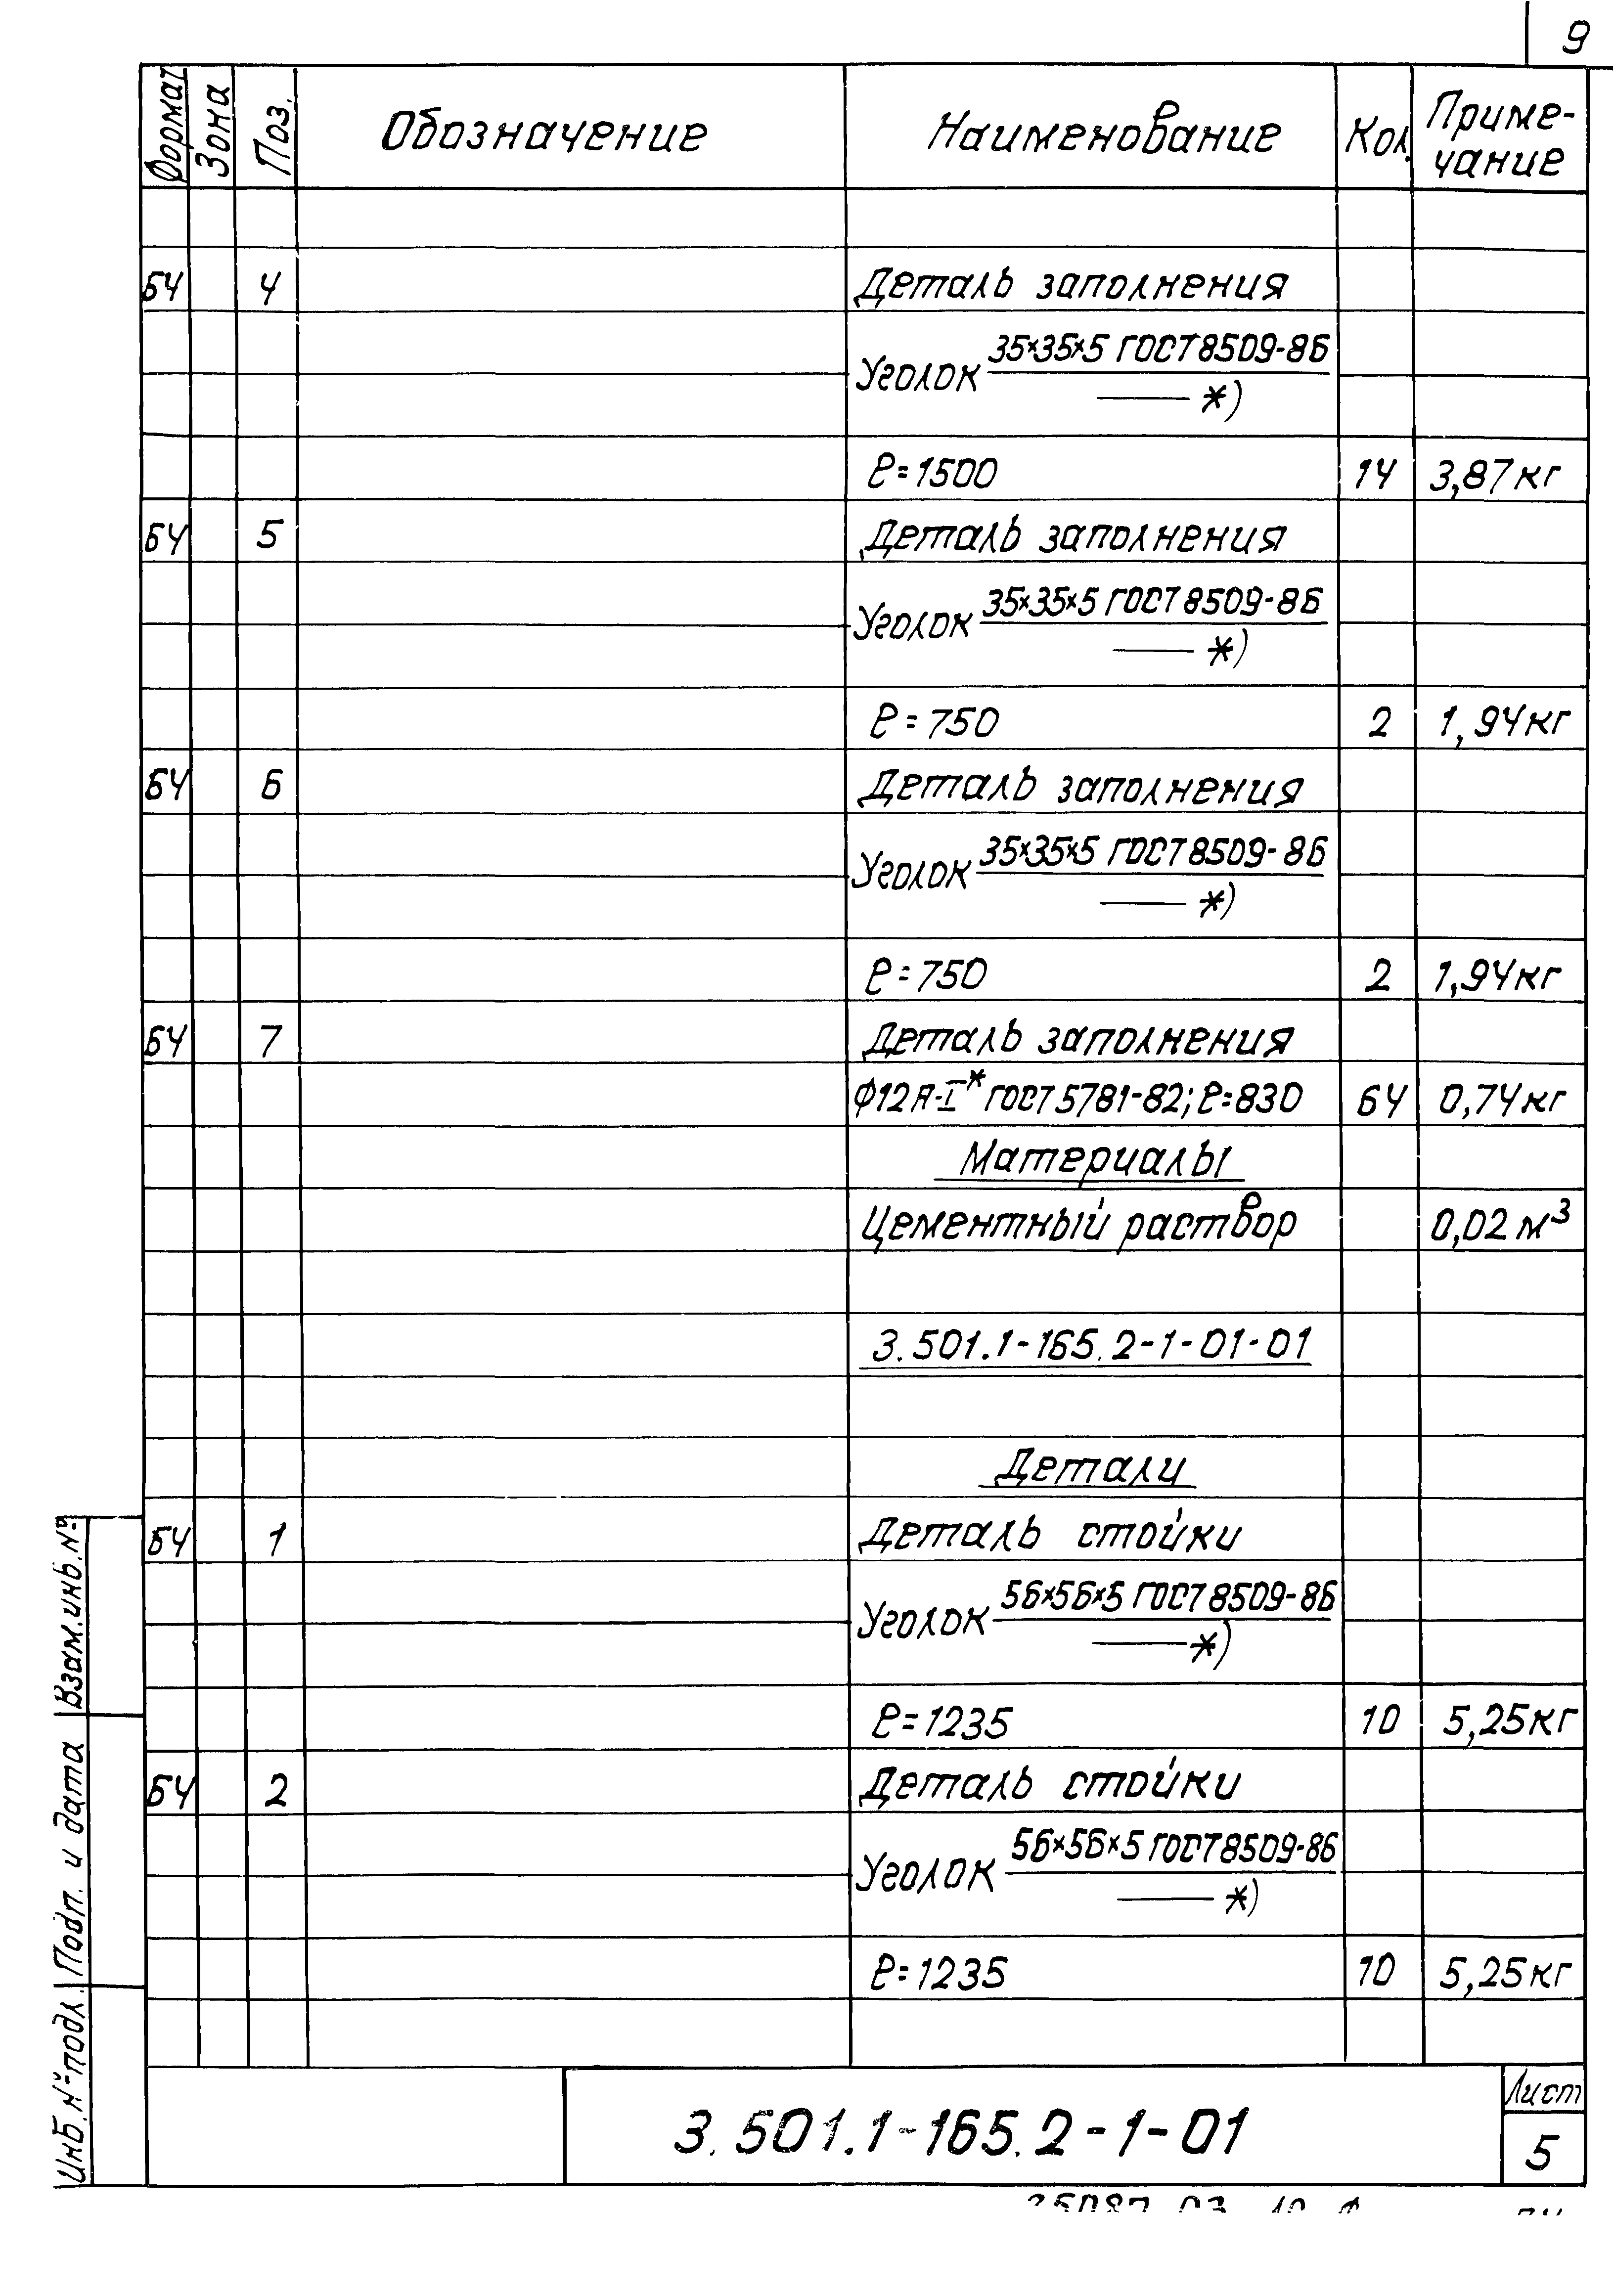 9
Формат Зона Поз. Обозначение Наименование Кол. Приме-
чание
БЧ 4 Деталь заполнения
Уголок 35×35×5 ГОСТ 8509-86
— *)
ℓ=1500 14 3,87кг
БЧ 5 Деталь заполнения
Уголок 35×35×5 ГОСТ 8509-86
— *)
ℓ=750 2 1,94кг
БЧ 6 Деталь заполнения
Уголок 35×35×5 ГОСТ 8509-86
— *)
ℓ=750 2 1,94кг
БЧ 7 Деталь заполнения
Ф12А-I* ГОСТ 5781-82; ℓ=830 64 0,74кг
Материалы
Цементный раствор 0,02 м³
3.501.1-165.2-1-01-01
Детали
БЧ 1 Деталь стойки
Уголок 56×56×5 ГОСТ 8509-86
— *)
ℓ=1235 10 5,25кг
БЧ 2 Деталь стойки
Уголок 56×56×5 ГОСТ 8509-86
— *)
ℓ=1235 10 5,25кг
Взам.инв.№
Подп. и дата
Инв.№подл.
3.501.1-165.2-1-01
Лист
5